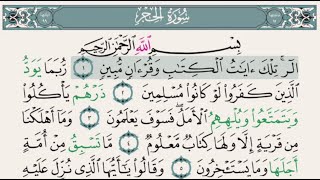 سُورَةُ الْحِجْرِ
بِسْمِ اللَّهِ الرَّحْمَٰنِ الرَّحِيمِ
الٓر ۚ تِلْكَ ءَايَٰتُ الْكِتَٰبِ وَقُرْءَانٍ مُّبِينٍ ١ رُبَمَا يَوَدُّ
الَّذِينَ كَفَرُوا لَوْ كَانُوا مُسْلِمِينَ ٢ ذَرْهُمْ يَأْكُلُوا
وَيَتَمَتَّعُوا وَيُلْهِهِمُ الْأَمَلُ ۖ فَسَوْفَ يَعْلَمُونَ ٣ وَمَا أَهْلَكْنَا
مِن قَرْيَةٍ إِلَّا وَلَهَا كِتَابٌ مَّعْلُومٌ ٤ مَّا تَسْبِقُ مِنْ أُمَّةٍ
أَجَلَهَا وَمَا يَسْتَـْٔخِرُونَ ٥ وَقَالُوا يَٰٓأَيُّهَا الَّذِي نُزِّلَ عَلَيْهِ